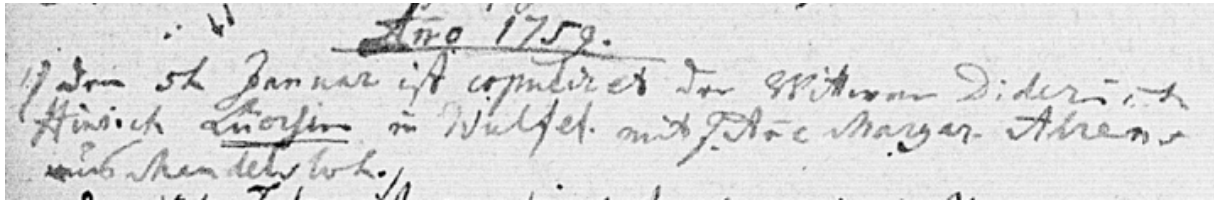 Año 1759.
1) den 5t. Januar ist copuliret der Wittwer Diderich
Hinrich in Wülfel. mit J. Margar. Ahrens
aus Mandelsloh.